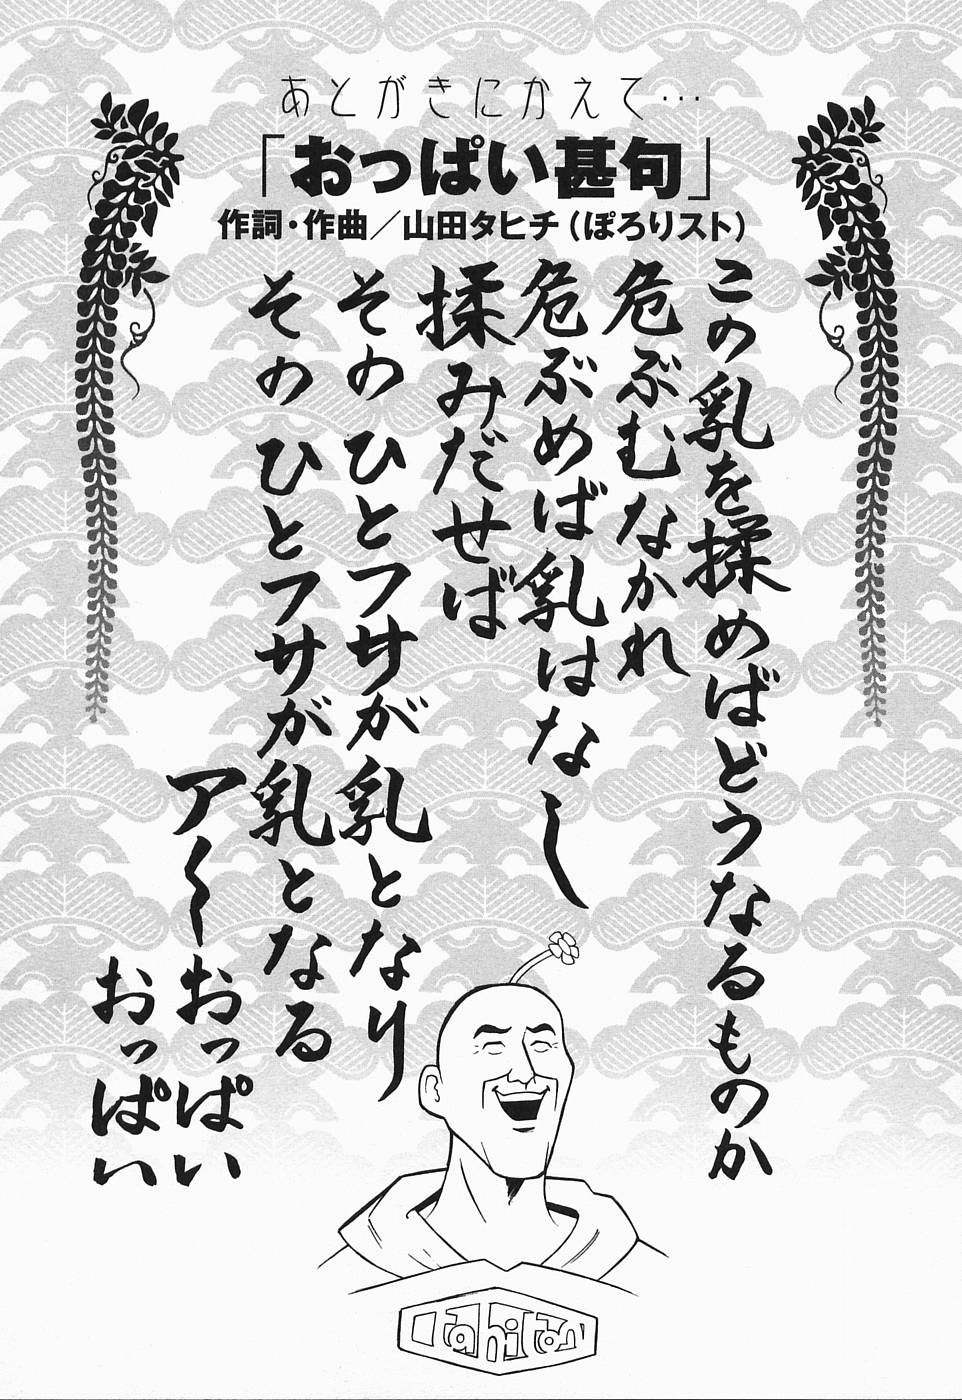 あとがきにかえて…
「おっぱい甚句」
作詞・作曲／山田タヒチ（ぽろりスト）
この乳を揉めばどうなるものか
危ぶむなかれ
危ぶめば乳はなし
揉みだせば
そのひとフサが乳となり
そのひとフサが乳となる
ア〜おっぱい
おっぱい
tahiton